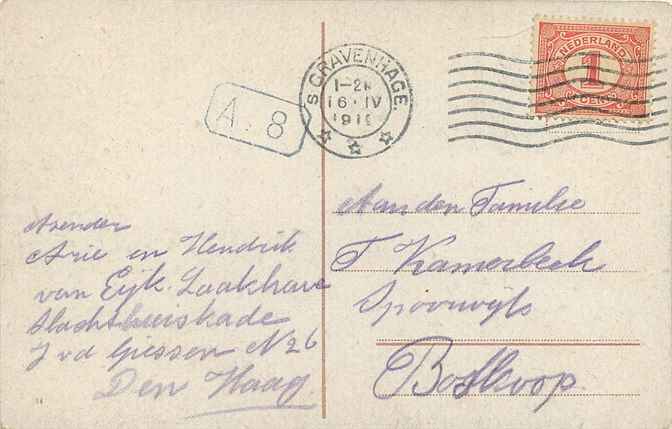 NEDERLAND
1
CENT
'S GRAVENHAGE.
1-2N
16·IV
191
A. 8
Afzender
Arie en Hendrik
van Eijk. Laakhave
Slachthuiskade
J vd Giessen No 26
Den Haag.
Aan den Familie
T Kamerbeek
Spoorwijk
Boskoop